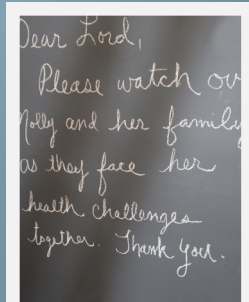 Dear Lord,
Please watch ov
Molly and her family
as they face her
health challenges
together. Thank you.